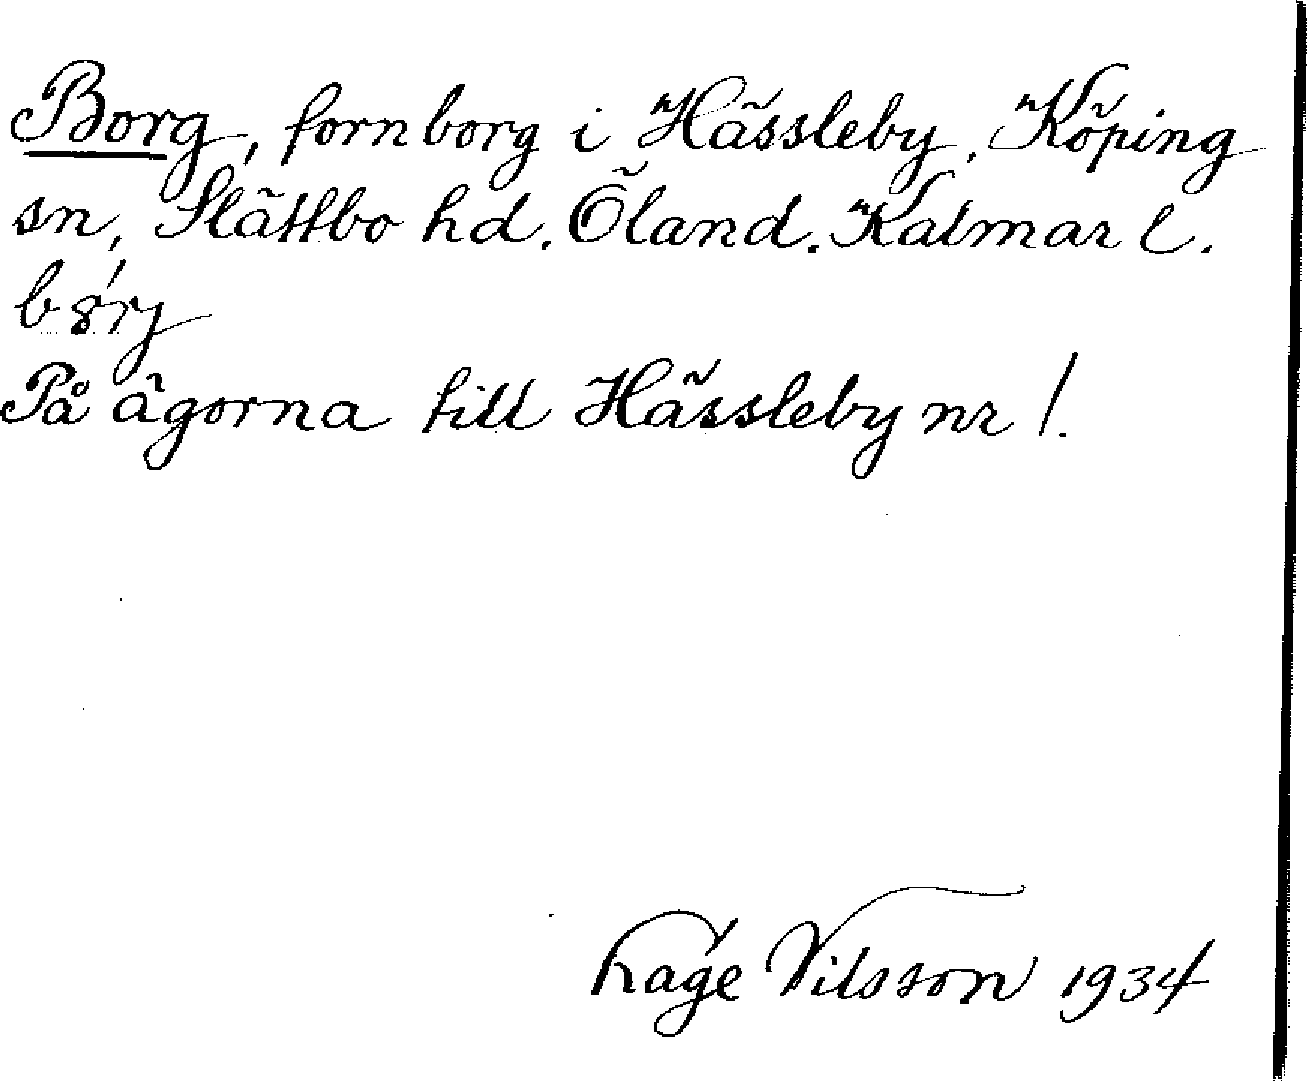 Borg, fornborg i Hässleby, Köping
sn, Slättbo hd. Öland. Kalmar l.
På ägorna till Hässleby nr 1.
Tage Nilsson 1934